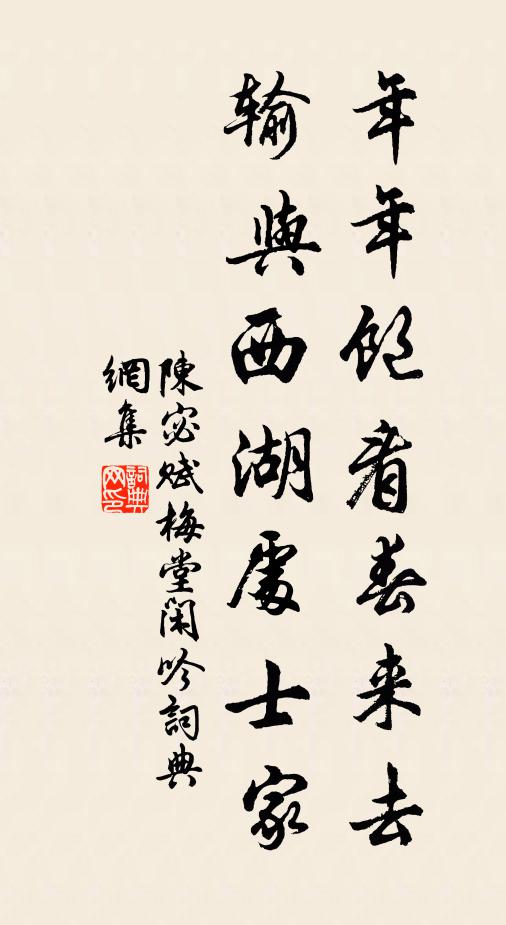 年年飽看春来去
輸與西湖處士家
陳宓賦梅堂閑吟詞典
網集
詞典
网印